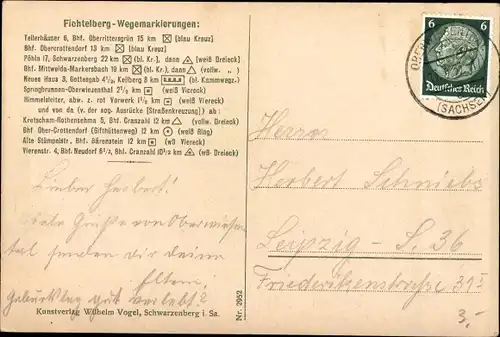 Fichtelberg-Wegemarkierungen:
Tellerhäuser 6, Bhf. Oberrittersgrün 15 km (blau Kreuz)
Bhf. Obercrottendorf 13 km (blau Kreuz)
Pöhla 17, Schwarzenberg 22 km (bl. Kr.), dann (weiß Dreieck)
Bhf. Mittweida-Markersbach 19 km (bl. Kr.), dann (vollw. „ )
Neues Haus 3, Gottesgab 4½, Keilberg 8 (bl. Kammwegz.)
Sprungbrunnen-Oberwiesenthal 2½ km (weiß Viereck)
Himmelsleiter, abw. z. rot Vorwerk 1½ km (weiß Viereck)
und von da (v. der aog. Aurücke [Straßenkreuzung]) ab:
Kretscham-Rothensehma 5, Bhf. Cranzahl 12 km (vollw. Dreieck)
Bhf Ober-Crottendorf (Gifthüttenweg) 12 km (weiß Ring)
Alte Stümpelstr., Bhf. Bärenstein 12 km (wß Viereck)
Vierenstr. 4, Bhf. Neudorf 6½, Bhf. Cranzahl 10½ km (wß- Dreieck)
Lieber Herbert!
Viele Grüße von Oberwiesen-
tal senden dir deine
Eltern.
Geburtstag gut verlebt?
Kunstverlag Wilhelm Vogel, Schwarzenberg i Sa.
Nr. 2952
6 6
Deutsches Reich
(SACHSEN)
Herrn
Herbert Schniebs
Leipzig - S. 36
Friederikenstraße 37 I
3,-